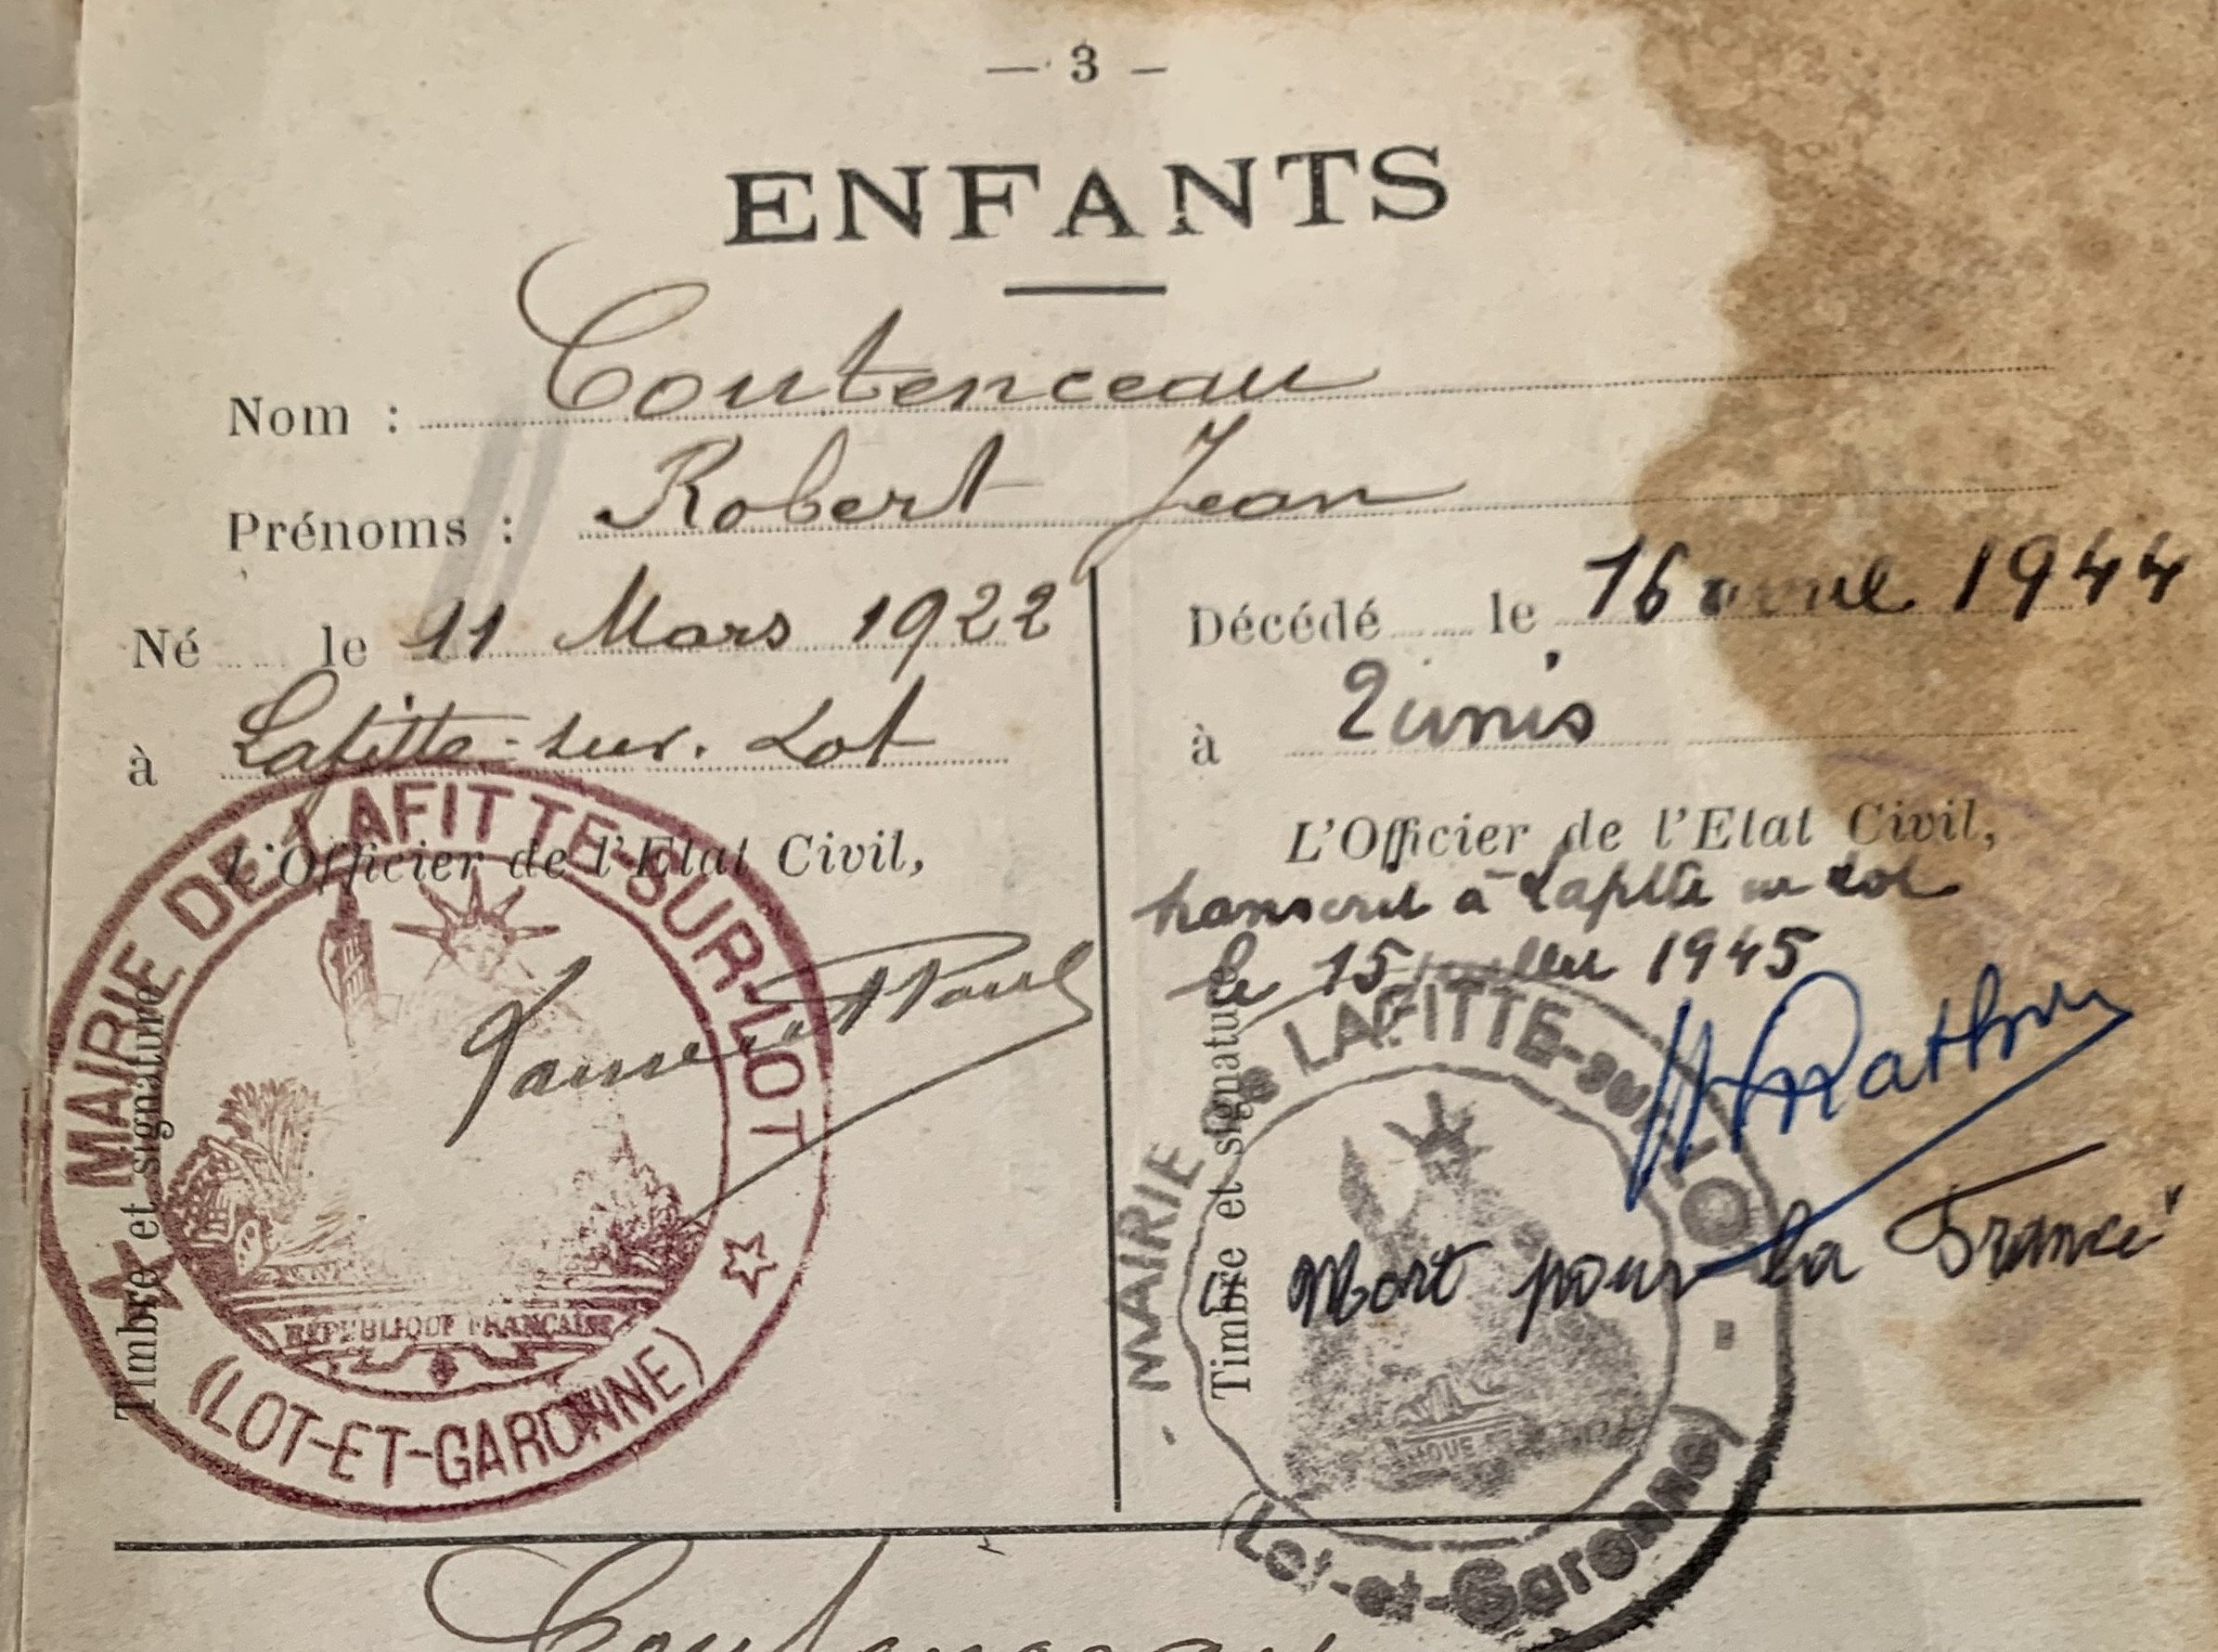 — 3 —
ENFANTS
Nom : Coutenceau
Prénoms : Robert Jean
Né le 11 Mars 1922
à Lafitte-sur-Lot
L'Officier de l'Etat Civil,
Timbre et signature
MAIRIE DE LAFITTE-SUR-LOT
REPUBLIQUE FRANÇAISE
(LOT-ET-GARONNE)
Paul
Décédé le 16 avril 1944
à Tunis
L'Officier de l'Etat Civil,
transcrit à Lafitte sur Lot
le 15 juillet 1945
Timbre et signature
MAIRIE de LAFITTE-sur-LOT
(Lot-et-Garonne)
"Mort pour la France"
Coutenceau